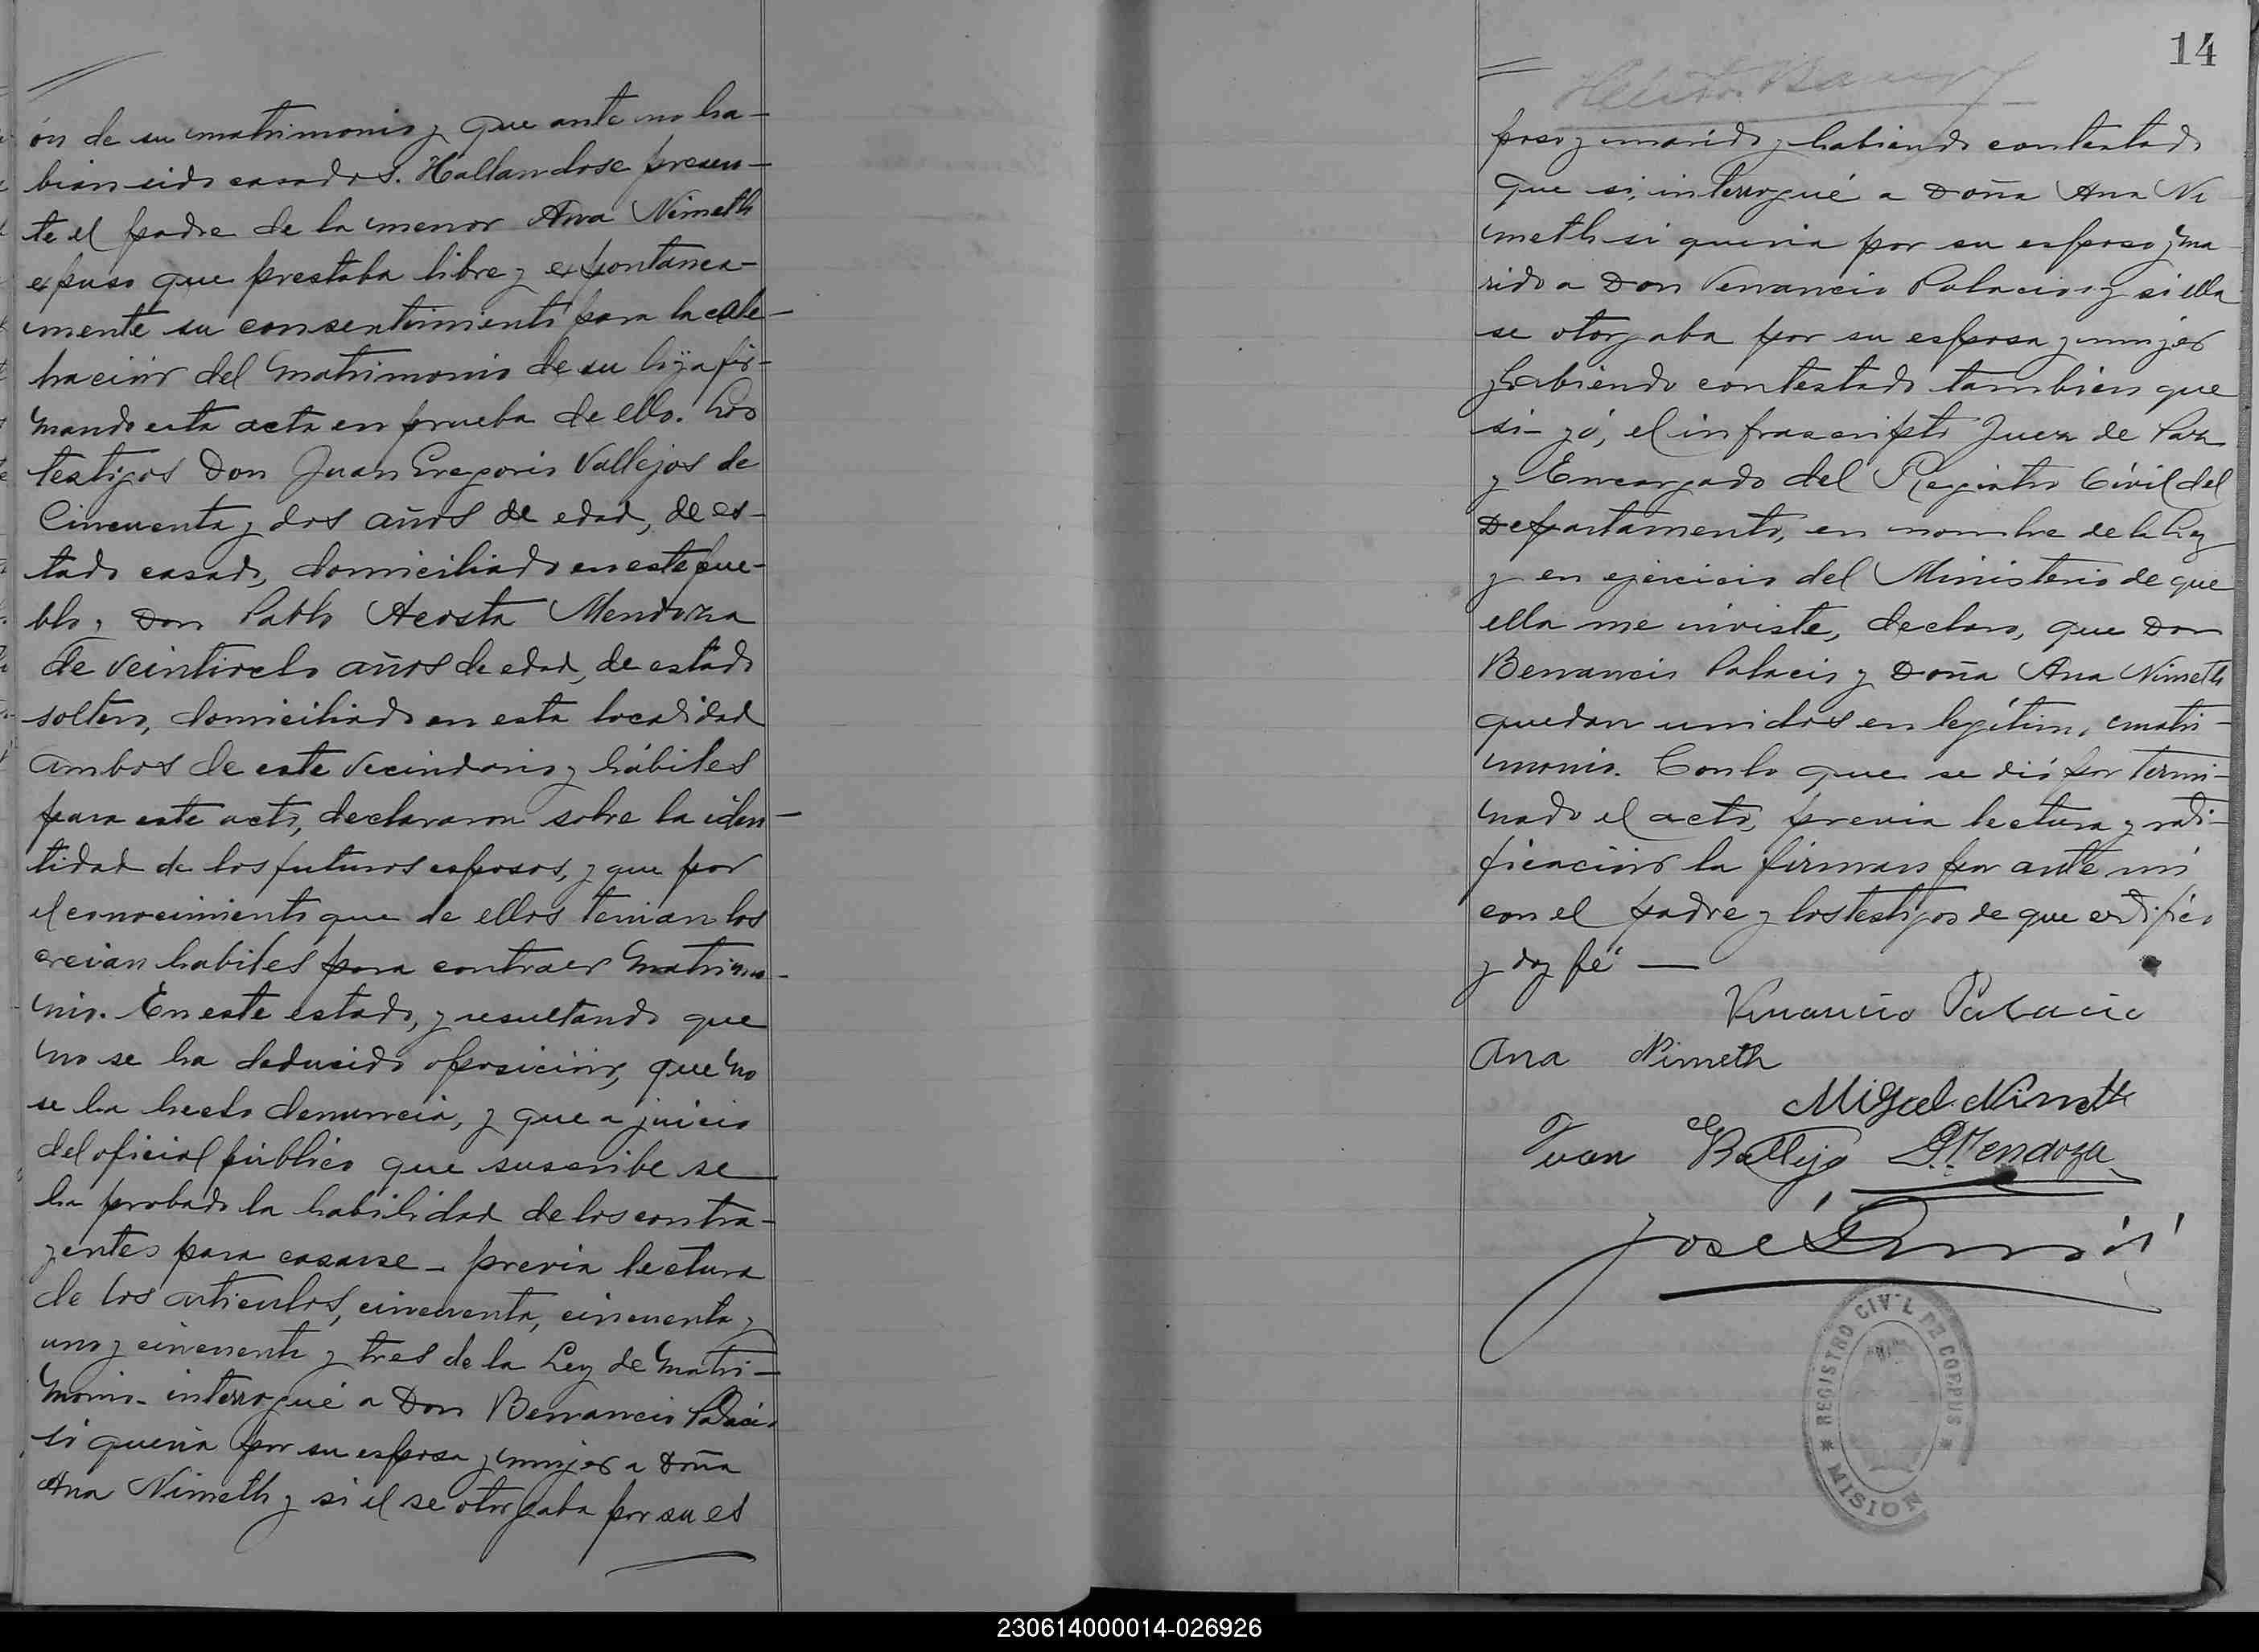 ón de su matrimonio y que ante no ha-
bian sido casados. Hallandose presen-
te el padre de la menor Ana Nimeth
expuso que prestaba libre y expontanea-
mente su consentimiento para la cele-
bración del matrimonio de su hija fir-
mando esta acta en prueba de ello. Los
testigos Don Juan Gregorio Vallejos de
Cincuenta y dos años de edad, de es-
tado casado, domiciliado en este pue-
blo, Don Pablo Acosta Mendoza
de veintiocho años de edad, de estado
soltero, domiciliado en esta localidad
ambos de este vecindario y hábiles
para este acto, declararon sobre la iden-
tidad de los futuros esposos, y que por
el conocimiento que de ellos tenian los
creian habiles para contraer matrimo-
nio. En este estado, y resultando que
no se ha deducido oposición, que no
se ha hecho denuncia, y que a juicio
del oficial público que suscribe se
ha probado la habilidad de los contra-
yentes para casarse - previa lectura
de los articulos, cincuenta, cincuenta y
uno y cincuenta y tres de la Ley de Matri-
monio - interrogué a Don Benancio Palacio
si queria por su esposa y mujer a Doña
Ana Nimeth y si el se otorgaba por su es
14
poso y marido y habiendo contestado
que si, interrogué a Doña Ana Ni
meth si queria por su esposo y ma
rido a Don Venancio Palacios y si ella
se otorgaba por su esposa y mujer
y habiendo contestado tambien que
si - yó, el infrascripto Juez de Paz
y Encargado del Registro Civil del
Departamento, en nombre de la Ley
y en ejercicio del Ministerio de que
ella me inviste, declaro, que Don
Benancio Palacio y Doña Ana Nimeth
quedan unidos en legítimo matri-
monio. Con lo que se dió por termi-
nado el acto, previa lectura y rati-
ficación la firman por ante mi
con el padre y los testigos de que certifico
y doy fé —
Venancio Palacio
Ana Nimeth
Miguel Nimeth
Juan G Ballejo P. Mendoza
José
REGISTRO CIVIL DE CORPUS
MISION
230614000014-026926